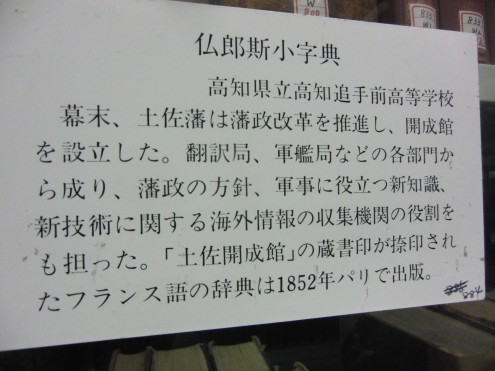 仏郎斯小字典
高知県立高知追手前高等学校
幕末、土佐藩は藩政改革を推進し、開成館
を設立した。翻訳局、軍艦局などの各部門か
ら成り、藩政の方針、軍事に役立つ新知識、
新技術に関する海外情報の収集機関の役割を
も担った。「土佐開成館」の蔵書印が捺印され
たフランス語の辞典は1852年パリで出版。